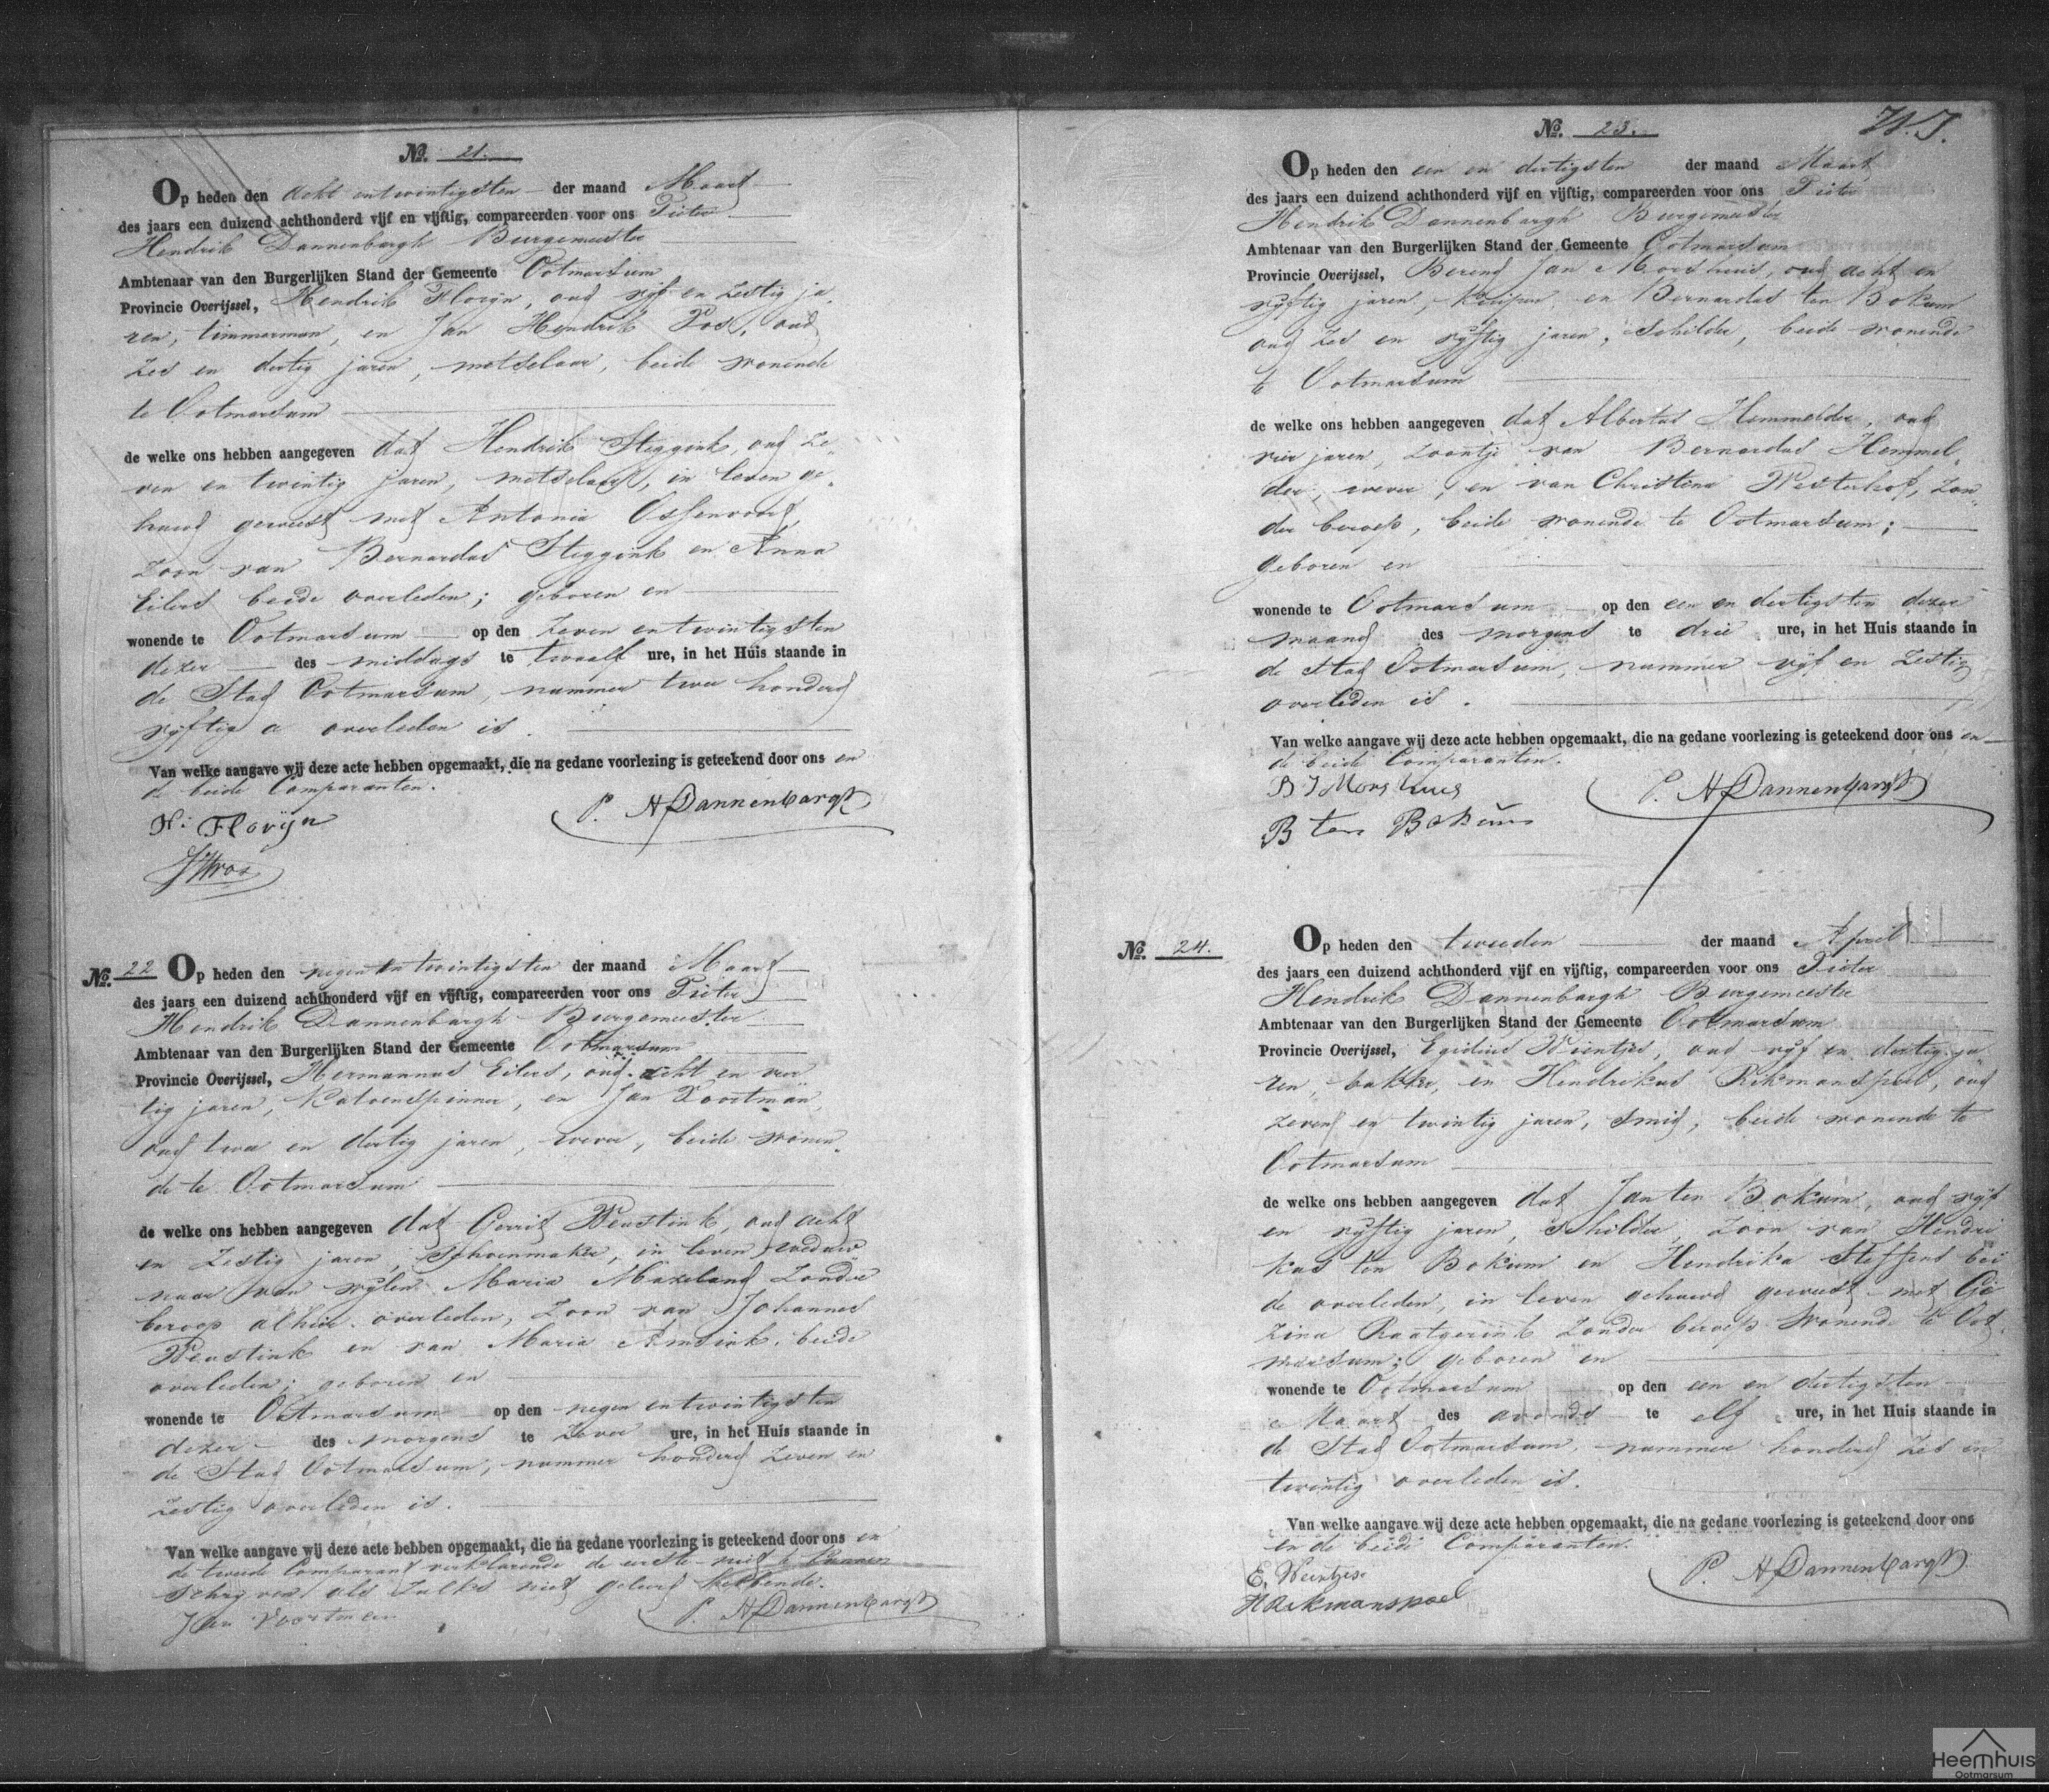 No. 21.
Op heden den acht en twintigsten der maand Maart
des jaars een duizend achthonderd vijf en vijftig, compareerden voor ons Pieter
Hendrik Dannenbargh Burgemeester
Ambtenaar van den Burgerlijken Stand der Gemeente Ootmarsum
Provincie Overijssel, Hendrik Florijn, oud vijf en zestig ja
ren, timmerman, en Jan Hendrik Vos, oud
zes en dertig jaren, metselaar, beide wonende
te Ootmarsum
de welke ons hebben aangegeven dat Hendrik Steggink, oud ze
ven en twintig jaren, metselaar, in leven ge
huwd geweest met Antonia Ossenvoort,
zoon van Bernardus Steggink en Anna
Eilers beide overleden; geboren en
wonende te Ootmarsum op den zeven en twintigsten
dezer des middags te twaalf ure, in het Huis staande in
de Stad Ootmarsum, nummer twee honderd
vijftig a overleden is.
Van welke aangave wij deze acte hebben opgemaakt, die na gedane voorlezing is geteekend door ons en
de beide Comparanten.
H: Florijn
P. H Dannenbargh
JHVos
No. 22
Op heden den negen en twintigsten der maand Maart
des jaars een duizend achthonderd vijf en vijftig, compareerden voor ons Pieter
Hendrik Dannenbargh Burgemeester
Ambtenaar van den Burgerlijken Stand der Gemeente Ootmarsum
Provincie Overijssel, Hermannus Eilers, oud acht en veer
tig jaren, Katoenspinner, en Jan Voortman,
oud twee en dertig jaren, wever, beide wonen
de te Ootmarsum
de welke ons hebben aangegeven dat Gerrit Weustink, oud acht
en zestig jaren, Schoenmaker, in leven weduw
naar van wijlen Maria Mazeland zonder
beroep alhier overleden, zoon van Johannes
Weustink en van Maria Amsink, beide
overleden; geboren en
wonende te Ootmarsum op den negen en twintigsten
dezer des morgens te zeven ure, in het Huis staande in
de Stad Ootmarsum, nummer honderd zeven en
zestig overleden is.
Van welke aangave wij deze acte hebben opgemaakt, die na gedane voorlezing is geteekend door ons en
de tweede Comparant verklarende de eerste niet te kunnen
schrijven als zulks niet geleerd hebbende.
Jan Voortman
P. H Dannenbargh
No. 23.
Op heden den een en dertigsten der maand Maart
des jaars een duizend achthonderd vijf en vijftig, compareerden voor ons Pieter
Hendrik Dannenbargh Burgemeester
Ambtenaar van den Burgerlijken Stand der Gemeente Ootmarsum
Provincie Overijssel, Berend Jan Morshuis, oud acht en
vijftig jaren, Kuiper en Bernardus ten Bokum
oud zes en vijftig jaren, Schilder, beide wonende
te Ootmarsum
de welke ons hebben aangegeven dat Albertus Hemmelder, oud
vier jaren, zoontje van Bernardus Hemmel
der, wever, en van Christina Westerhof, zon
der beroep, beide wonende te Ootmarsum;
geboren en
wonende te Ootmarsum op den een en dertigsten dezer
maand des morgens te drie ure, in het Huis staande in
de Stad Ootmarsum, nummer vijf en zestig
overleden is.
Van welke aangave wij deze acte hebben opgemaakt, die na gedane voorlezing is geteekend door ons en
de beide Comparanten.
B J Morshuis
P. H Dannenbargh
B ten Bokum
No. 24.
Op heden den tweeden der maand April
des jaars een duizend achthonderd vijf en vijftig, compareerden voor ons Pieter
Hendrik Dannenbargh Burgemeester
Ambtenaar van den Burgerlijken Stand der Gemeente Ootmarsum
Provincie Overijssel, Egidius Weentjes, oud vijf en dertig ja
ren, bakker, en Hendrikus Rikmanspoel, oud
zeven en twintig jaren, smid, beide wonende te
Ootmarsum
de welke ons hebben aangegeven dat Jan ten Bokum, oud vijf
en vijftig jaren, schilder, zoon van Hendri
kus ten Bokum en Hendrika Steffens bei
de overleden, in leven gehuwd geweest met Ge
zina Raatgerink zonder beroep wonende te Oot
marsum; geboren en
wonende te Ootmarsum op den een en dertigsten
Maart des avonds te elf ure, in het Huis staande in
de Stad Ootmarsum, nummer honderd zes en
twintig overleden is.
Van welke aangave wij deze acte hebben opgemaakt, die na gedane voorlezing is geteekend door ons
en de beide Comparanten.
E. Weentjes
P. H Dannenbargh
H Rikmanspoel
Heemhuis
Ootmarsum